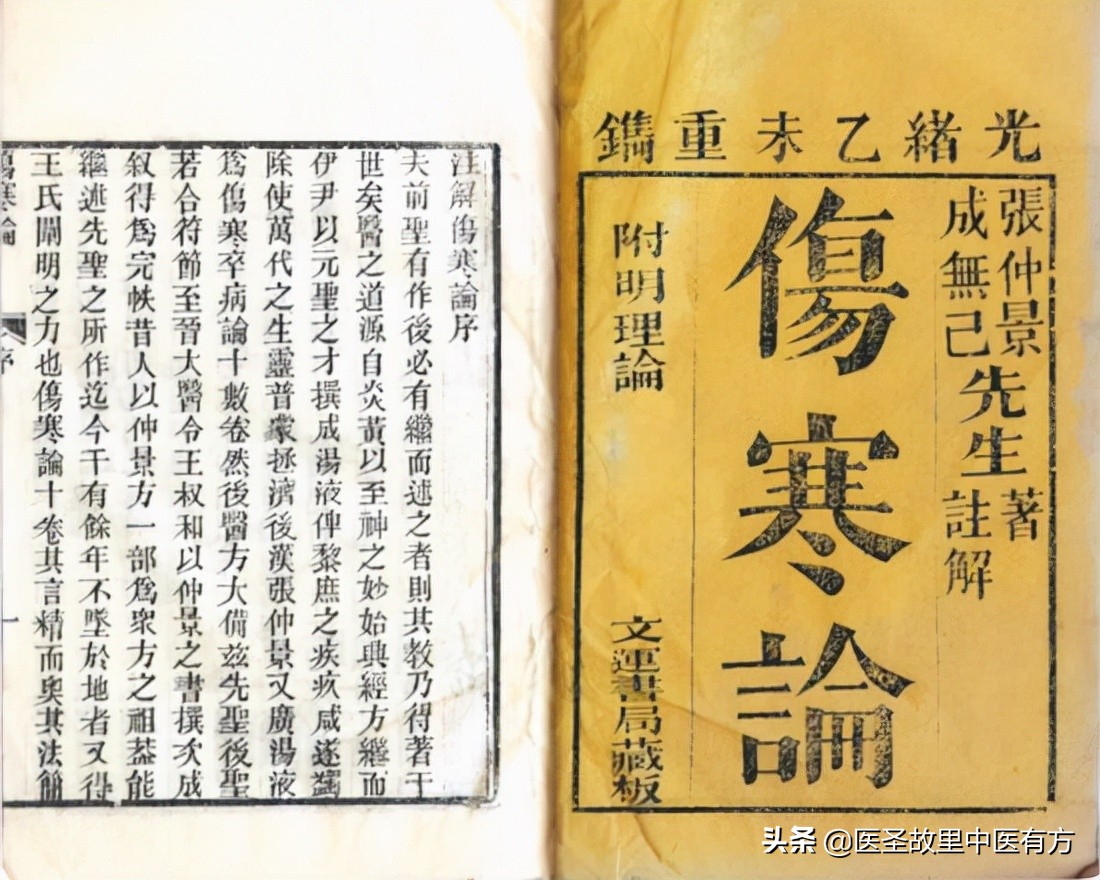 光緒乙未重鐫
張仲景先生著
成無己先生註解
傷寒論
附明理論
文運書局藏板
注解傷寒論序
夫前聖有作後必有繼而述之者則其教乃得著于
世矣醫之道源自炎黃以至神之妙始興經方繼而
伊尹以元聖之才撰成湯液俾黎庶之疾疚咸遂蠲
除使萬代之生靈普蒙拯濟後漢張仲景又廣湯液
爲傷寒卒病論十數卷然後醫方大備茲先聖後聖
若合符節至晉大醫令王叔和以仲景之書撰次成
敘得爲完帙昔人以仲景方一部爲衆方之祖葢能
繼述先聖之所作迄今千有餘年不墜於地者又得
王氏闡明之力也傷寒論十卷其言精而奧其法簡
傷寒論
序
一
头条 @医圣故里中医有方